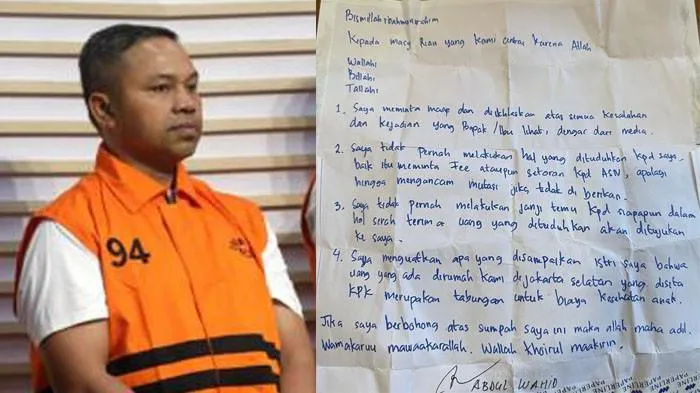 94
Bismillahirahmanirahim
Kepada masy Riau yang kami cintai karena Allah
Wallahi
Billahi
Tallahi
1. Saya meminta maaf dan diikhlaskan atas semua kesalahan
dan kejadian yang Bapak/Ibu lihat, dengar dari media.
2. Saya tidak pernah melakukan hal yang dituduhkan kpd saya
baik itu meminta Fee ataupun setoran kpd ASN, apalagi
hingga mengancam mutasi jika tidak di berikan.
3. Saya tidak pernah melakukan janji temu kpd siapapun dalam
hal serah terima uang yang dituduhkan akan ditujukan
ke saya.
4. Saya menguatkan apa yang disampaikan istri saya bahwa
uang yang ada dirumah kami dejakarta selatan yang disita
KPK merupakan tabungan untuk biaya kesehatan anak.
Jika saya berbohong atas sumpah saya ini maka allah maha adil.
Wamakaruu mawaakarallah. Wallah khoirul maakirin.
ABDUL WAHID
PAPERLINE